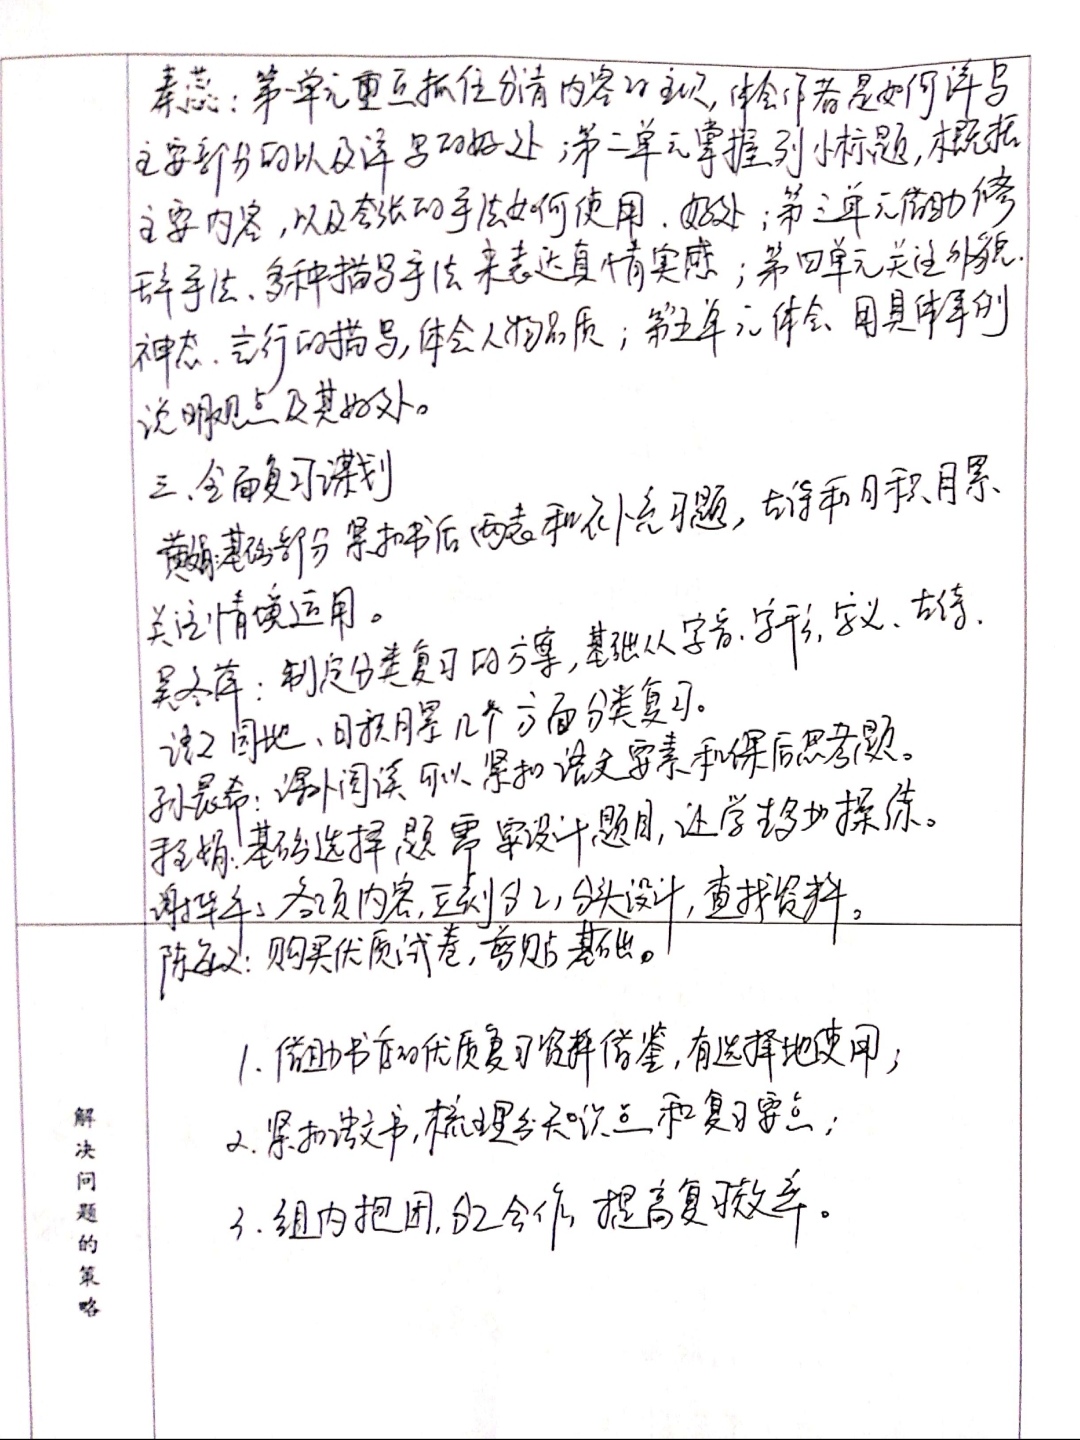 秦蕊：第一单元重点抓住分清内容的主次，体会作者是如何详写
主要部分的以及详写的好处；第二单元掌握列小标题，概括
主要内容，以及夸张的手法如何使用、好处；第三单元借助修
辞手法、多种描写手法来表达真情实感；第四单元关注外貌、
神态、言行的描写，体会人物品质；第五单元体会用具体事例
说明观点及其好处。
三、全面复习谋划
黄娟：基础部分紧扣书后两表和补充习题，古诗和日积月累、
关注情境运用。
吴冬萍：制定分类复习的方案，基础从字音、字形、字义、古诗、
语文园地、日积月累几个方面分类复习。
孙晨希：课外阅读可以紧扣语文要素和课后思考题。
程娟：基础选择题需要设计题目，让学生多加操练。
谢华：各项内容，立刻分工，分头设计，查找资料。
陈：购买优质试卷，剪贴基础。
1. 借助书店的优质复习资料借鉴，有选择地使用；
2. 紧扣语文书，梳理多知识点和复习要点；
3. 组内抱团，分工合作，提高复习效率。
解决问题的策略